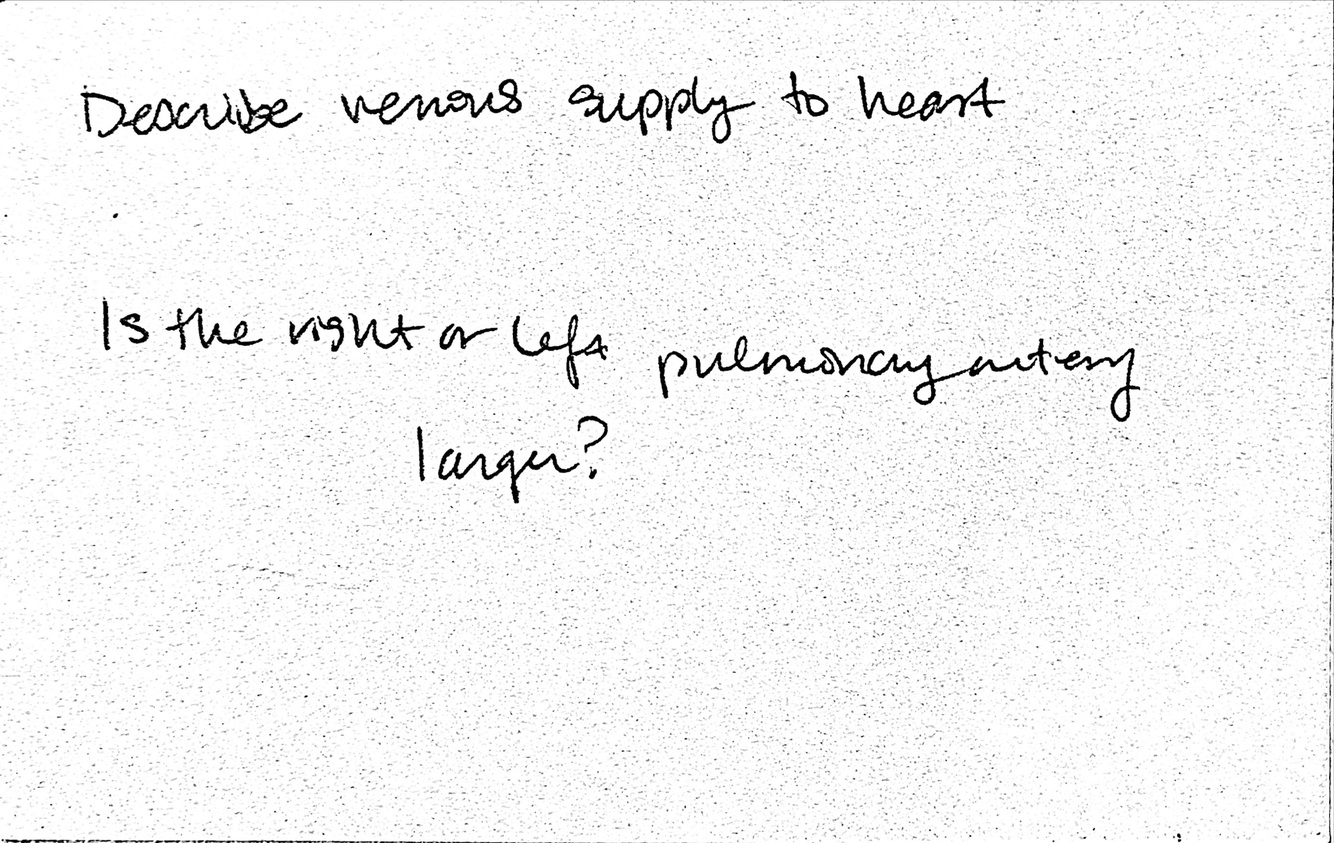 Describe venous supply to heart
Is the right or left pulmonary artery
larger?